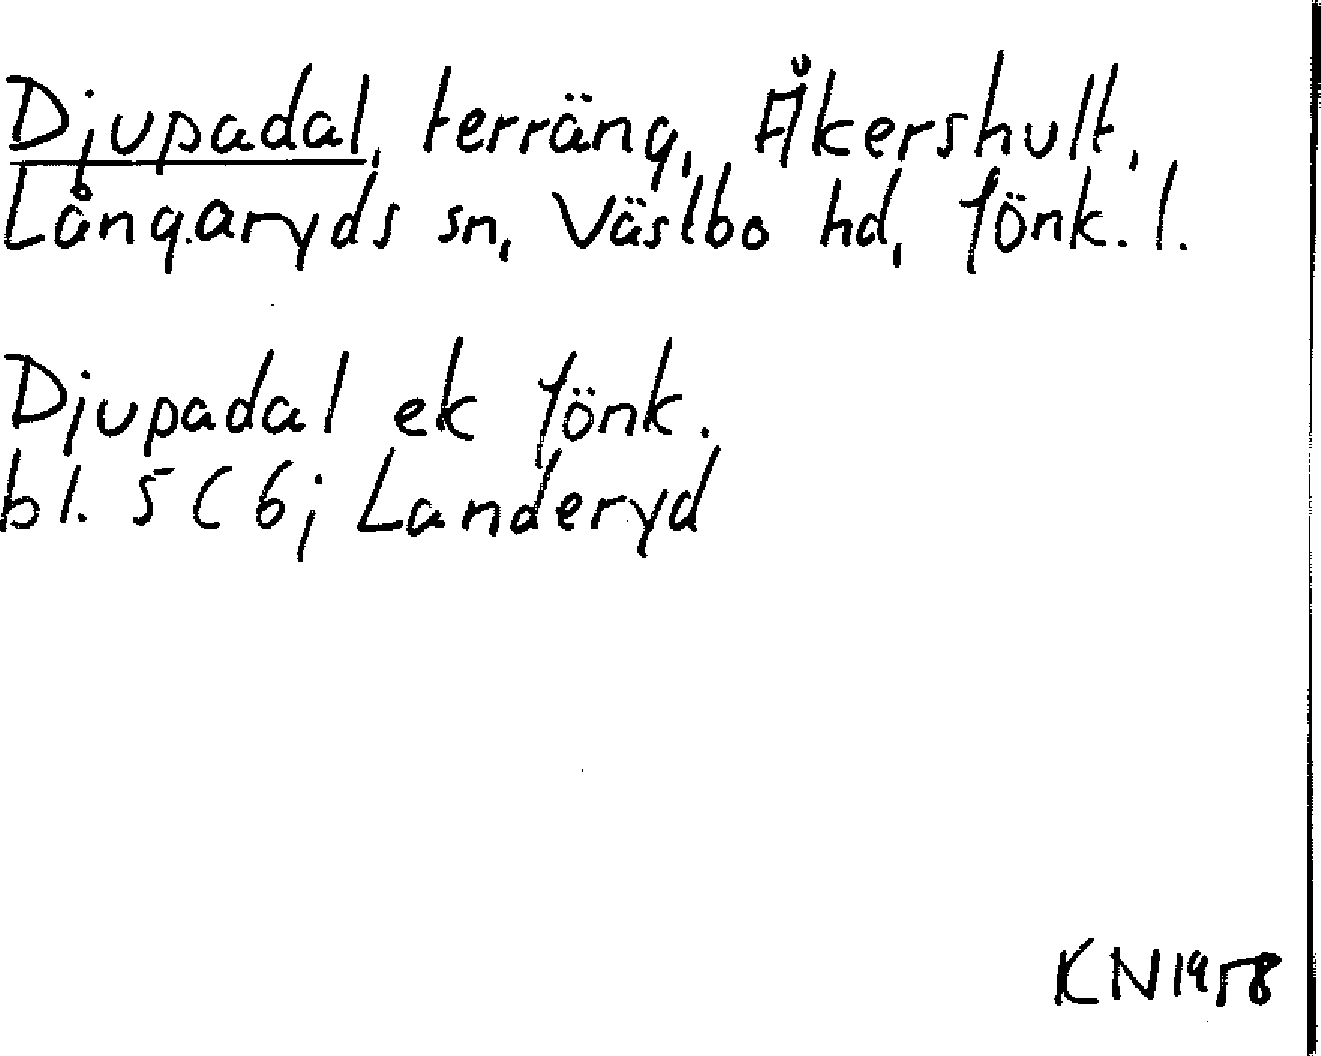 Djupadal, terräng, Åkershult,
Långaryds sn, Västbo hd, Jönk. l.
Djupadal ek Jönk.
bl. 5 C 6; Landeryd
KN 1958